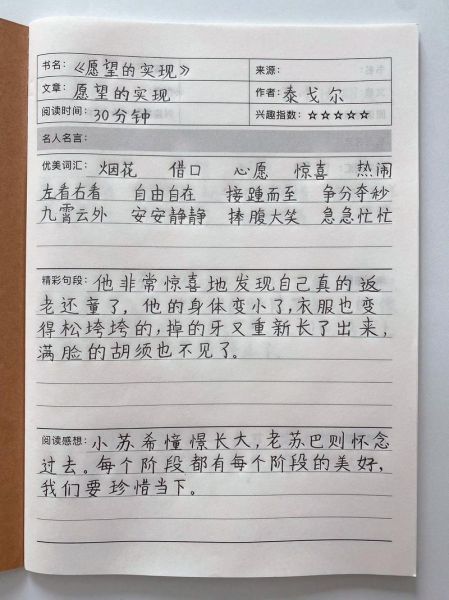 书名：《愿望的实现》 来源：
文章：愿望的实现 作者：泰戈尔
阅读时间：30分钟 兴趣指数：☆☆☆☆☆
名人名言：
优美词汇： 烟花 借口 心愿 惊喜 热闹
左看右看 自由自在 接踵而至 争分夺秒
九霄云外 安安静静 捧腹大笑 急急忙忙
精彩句段：他非常惊喜地发现自己真的返
老还童了，他的身体变小了，衣服也变
得松垮垮的，掉的牙又重新长了出来，
满脸的胡须也不见了。
阅读感想：小苏希憧憬长大，老苏巴则怀念
过去。每个阶段都有每个阶段的美好，
我们要珍惜当下。